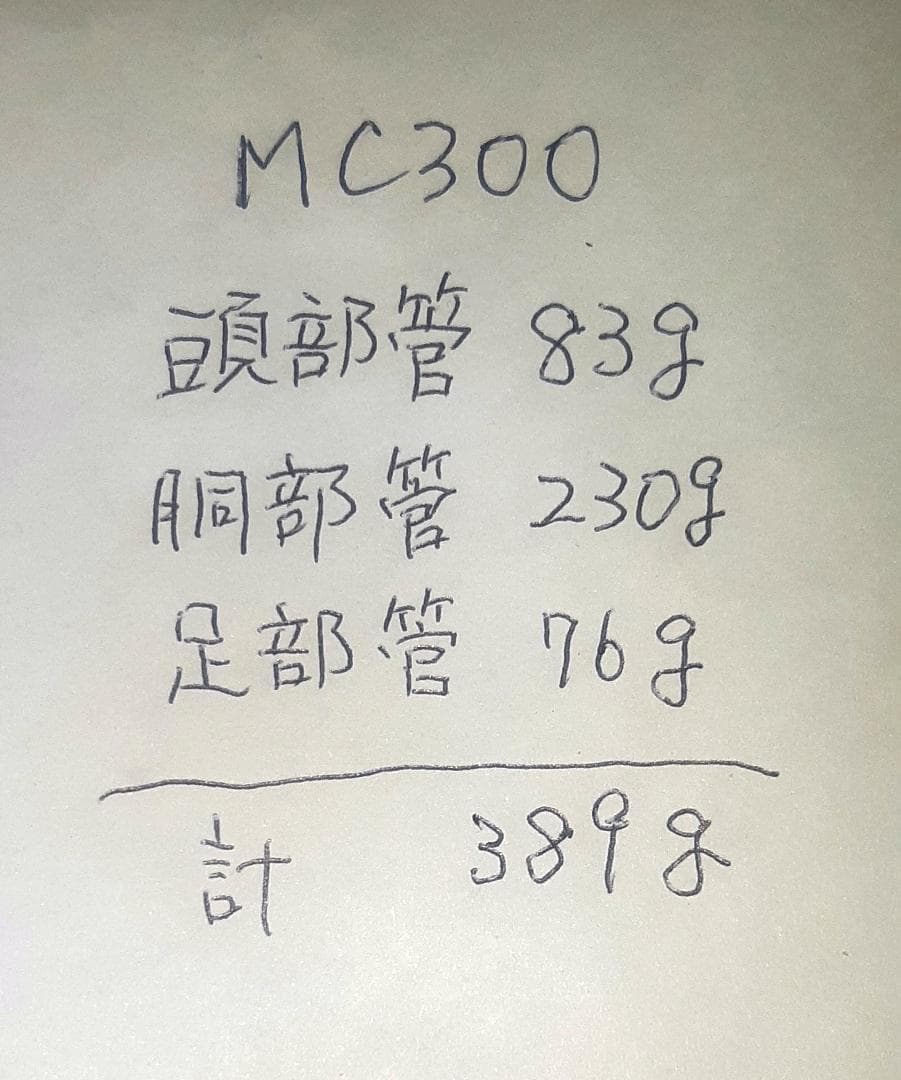 MC300
頭部管 83g
胴部管 230g
足部管 76g
計 389g